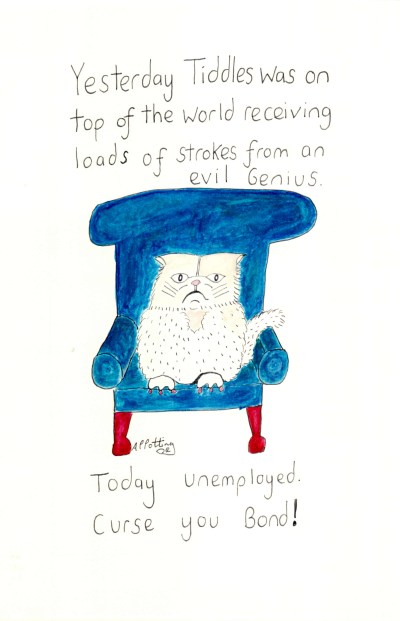 Yesterday Tiddles was on
top of the world receiving
loads of strokes from an
evil Genius.
APPotting
Today unemployed.
Curse you Bond!